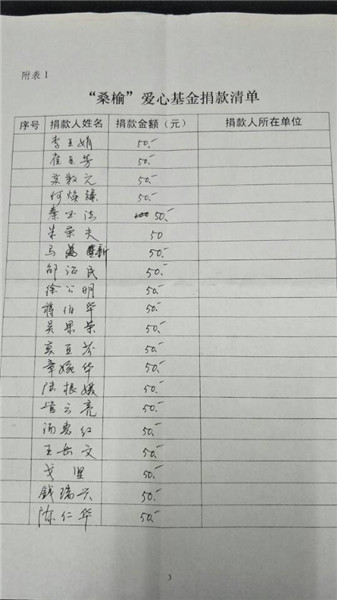 附表1
“桑榆”爱心基金捐款清单
序号 捐款人姓名 捐款金额（元） 捐款人所在单位
李玉娟 50.-
崔玉芳 50.-
50.-
何焕臻 50.-
秦玉洁 50.-
朱荣夫 50
马 新 50.-
邵治民 50.-
徐公明 50.-
穆伯华 50.-
吴果荣 50.-
袁亚芬 50.-
章婉华 50.-
陆振媛 50.-
管云亮 50.-
汤惠红 50.-
王岳文 50.-
戈 坚 50.-
钱瑞兴 50.-
陈仁华 50.-
3